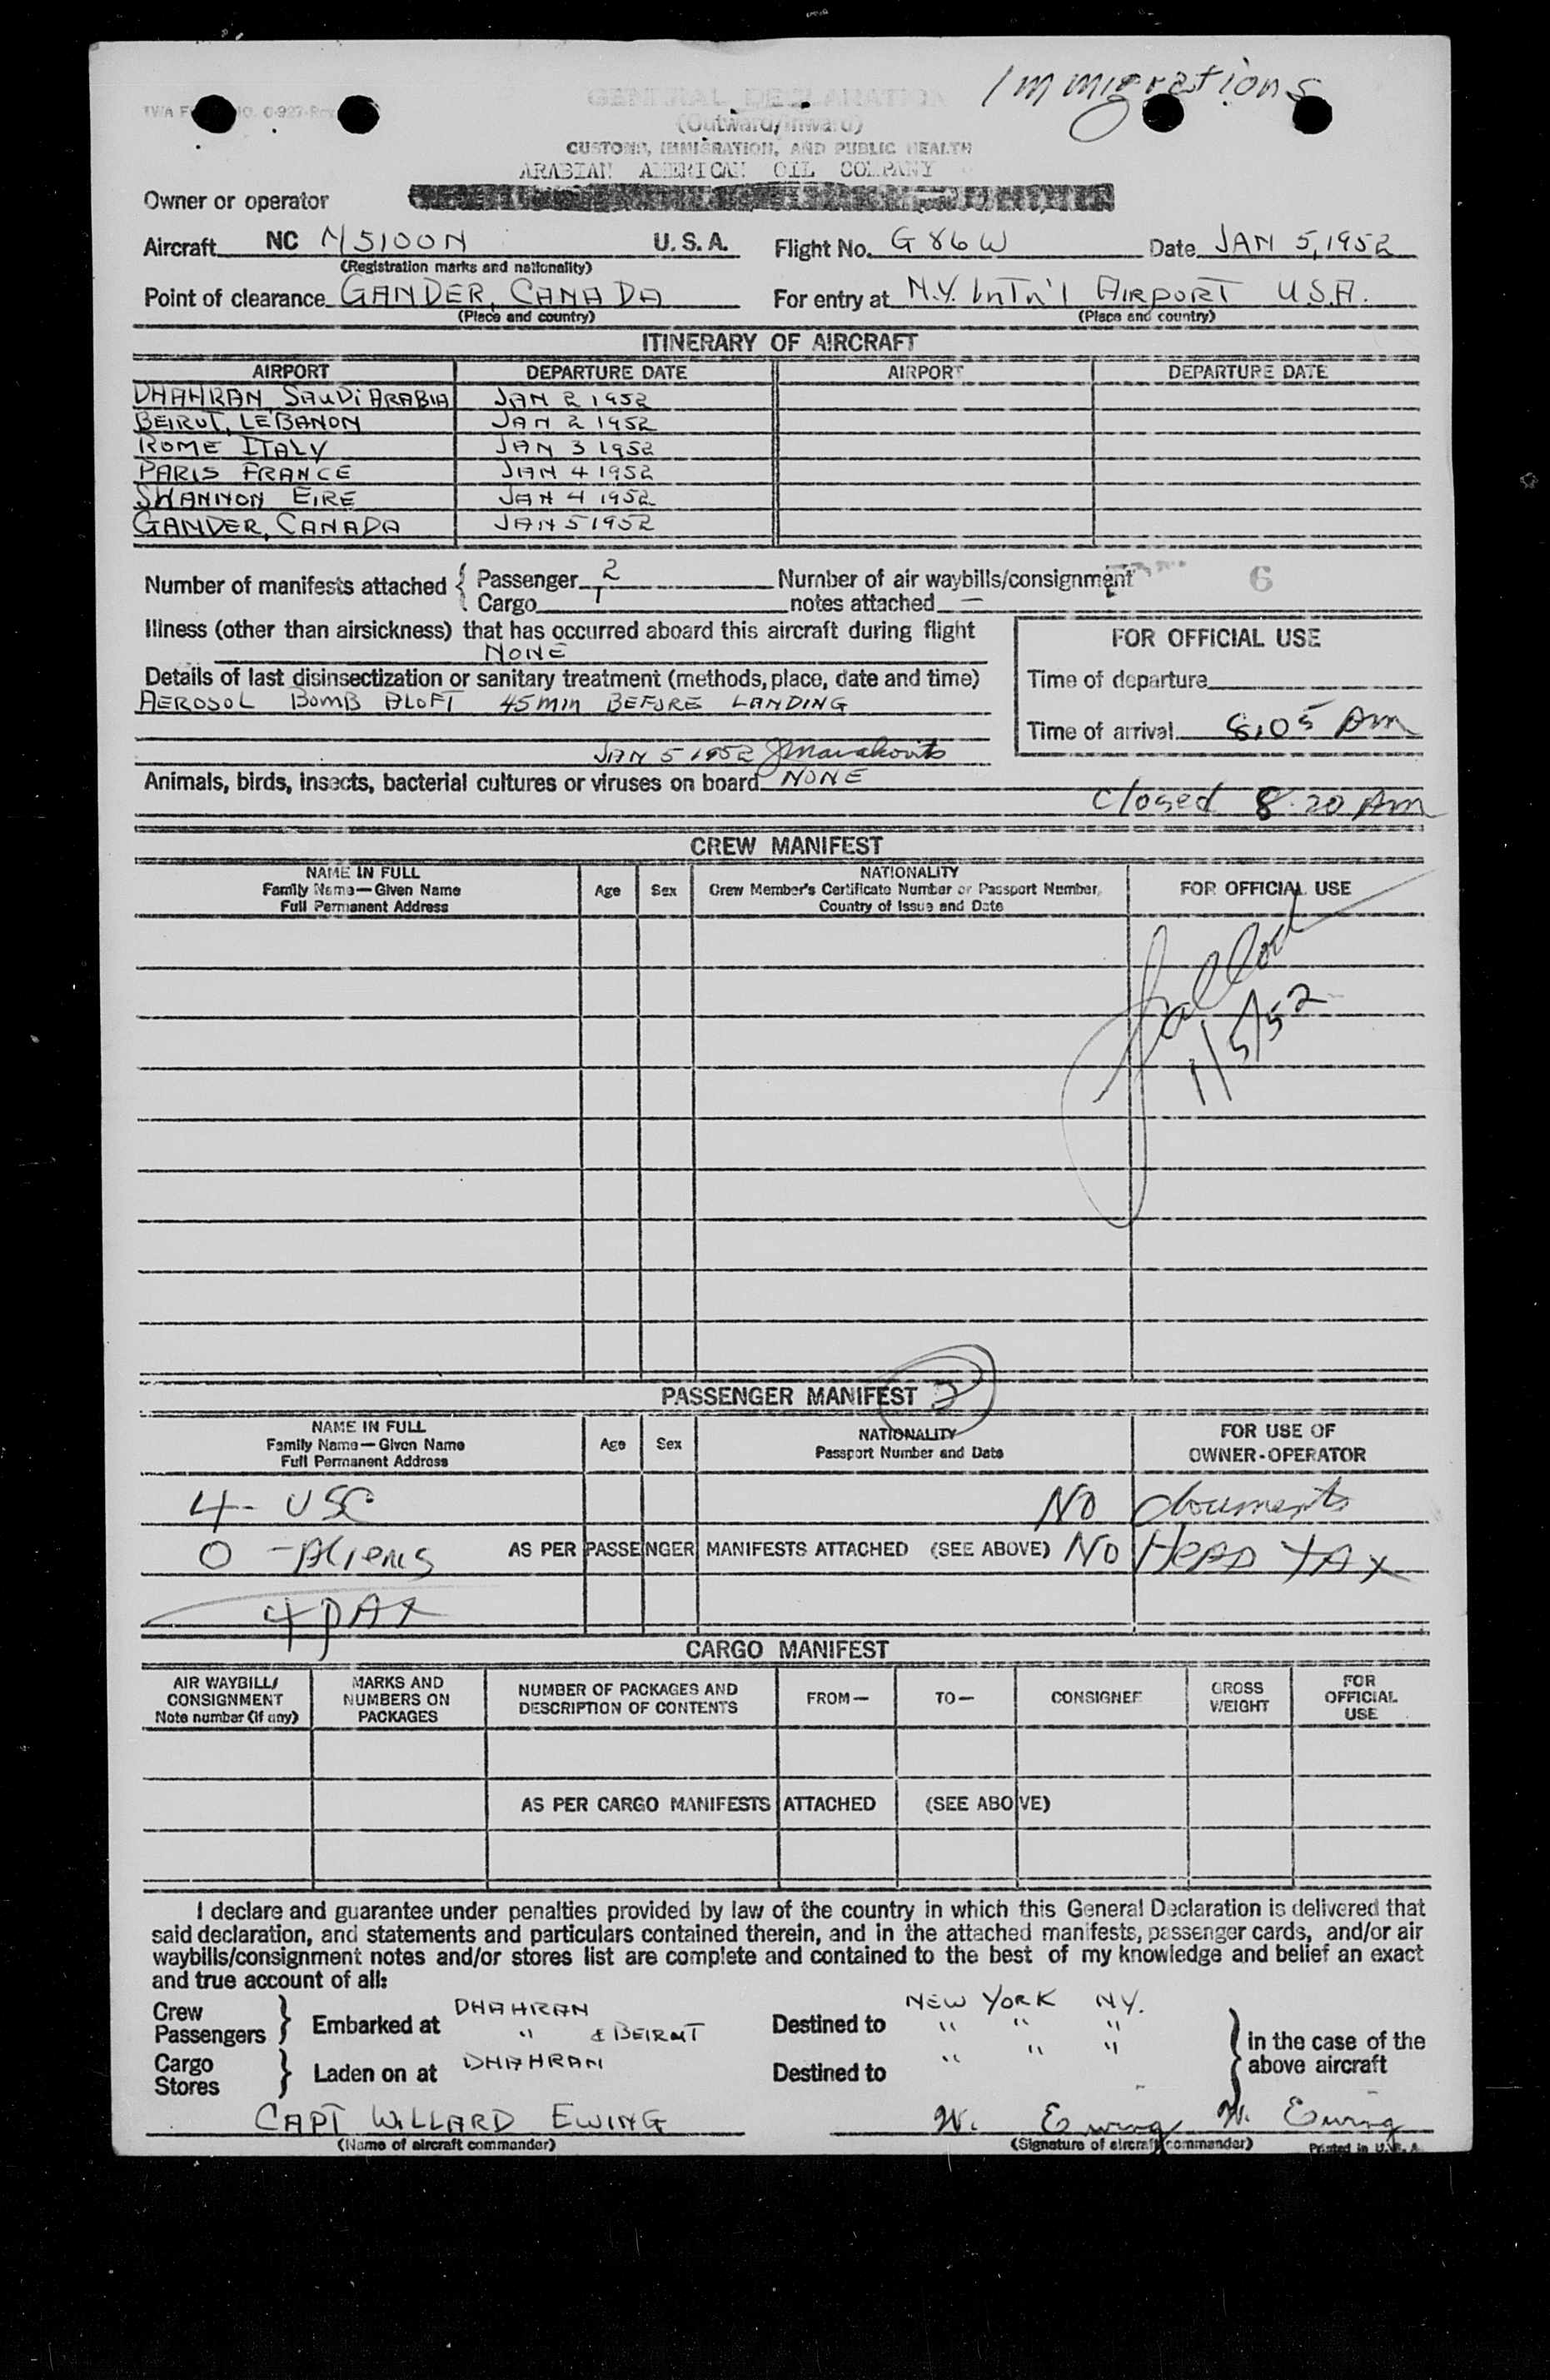 Immigrations
GENERAL DECLARATION
(Outward/Inward)
CUSTOMS, IMMIGRATION, AND PUBLIC HEALTH
ARABIAN AMERICAN OIL COMPANY
Owner or operator
Aircraft NC N5100N U.S.A. Flight No. G86W Date JAN 5, 1952
(Registration marks and nationality)
Point of clearance GANDER, CANADA For entry at N.Y. INTN'L AIRPORT U.S.A.
(Place and country) (Place and country)
ITINERARY OF AIRCRAFT
AIRPORT DEPARTURE DATE AIRPORT DEPARTURE DATE
DHAHRAN SAUDI ARABIA JAN 2 1952
BEIRUT, LEBANON JAN 2 1952
ROME ITALY JAN 3 1952
PARIS FRANCE JAN 4 1952
SHANNON EIRE JAN 4 1952
GANDER, CANADA JAN 5 1952
Number of manifests attached { Passenger 2 Number of air waybills/consignment 6
Cargo 1 notes attached —
Illness (other than airsickness) that has occurred aboard this aircraft during flight
NONE
FOR OFFICIAL USE
Details of last disinsectization or sanitary treatment (methods, place, date and time)
Time of departure
AEROSOL BOMB ALOFT 45 MIN BEFORE LANDING
Time of arrival 8:05 AM
JAN 5 1952
Animals, birds, insects, bacterial cultures or viruses on board NONE
Closed 8:20 AM
CREW MANIFEST
NAME IN FULL
Family Name—Given Name
Full Permanent Address
Age Sex
NATIONALITY
Crew Member's Certificate Number or Passport Number,
Country of Issue and Date
FOR OFFICIAL USE
1/5/52
PASSENGER MANIFEST 2
NAME IN FULL
Family Name—Given Name
Full Permanent Address
Age Sex
NATIONALITY
Passport Number and Date
FOR USE OF
OWNER-OPERATOR
4 - USC No documents
0 - Aliens AS PER PASSENGER MANIFESTS ATTACHED (SEE ABOVE) No HEAD TAX
4 PAX
CARGO MANIFEST
AIR WAYBILL/
CONSIGNMENT
Note number (if any)
MARKS AND
NUMBERS ON
PACKAGES
NUMBER OF PACKAGES AND
DESCRIPTION OF CONTENTS
FROM— TO— CONSIGNEE
GROSS
WEIGHT
FOR
OFFICIAL
USE
AS PER CARGO MANIFESTS ATTACHED (SEE ABOVE)
I declare and guarantee under penalties provided by law of the country in which this General Declaration is delivered that
said declaration, and statements and particulars contained therein, and in the attached manifests, passenger cards, and/or air
waybills/consignment notes and/or stores list are complete and contained to the best of my knowledge and belief an exact
and true account of all:
Crew } Embarked at DHAHRAN Destined to NEW YORK NY. } in the case of the
Passengers " & BEIRUT " " " above aircraft
Cargo } Laden on at DHAHRAN Destined to " " "
Stores
CAPT WILLARD EWING W. Ewing W. Ewing
(Name of aircraft commander) (Signature of aircraft commander) Printed in U.S.A.